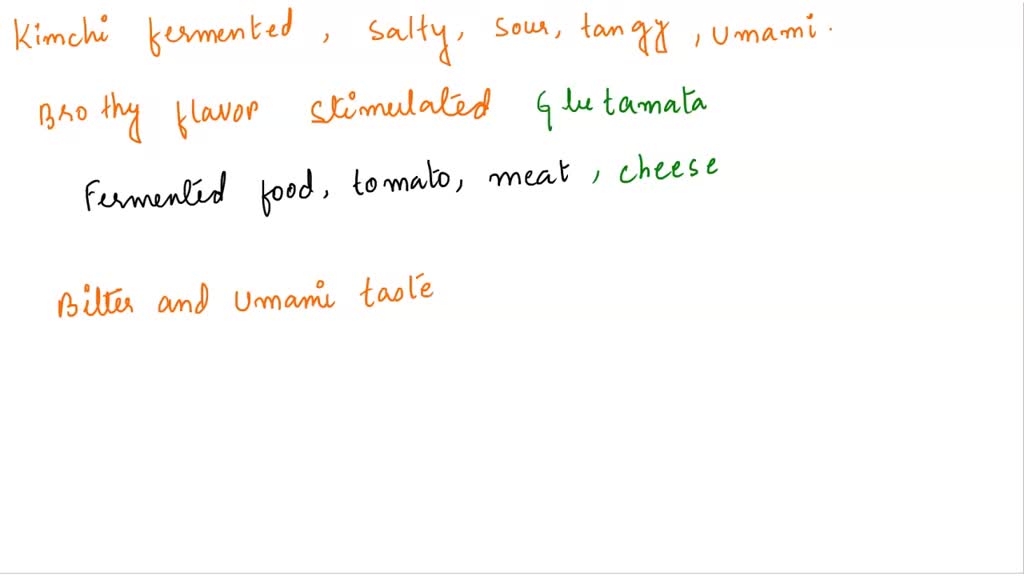 Kimchi fermented, salty, sour, tangy, umami.
Brothy flavor stimulated Glutamata
Fermented food, tomato, meat, cheese
Bitter and umami taste